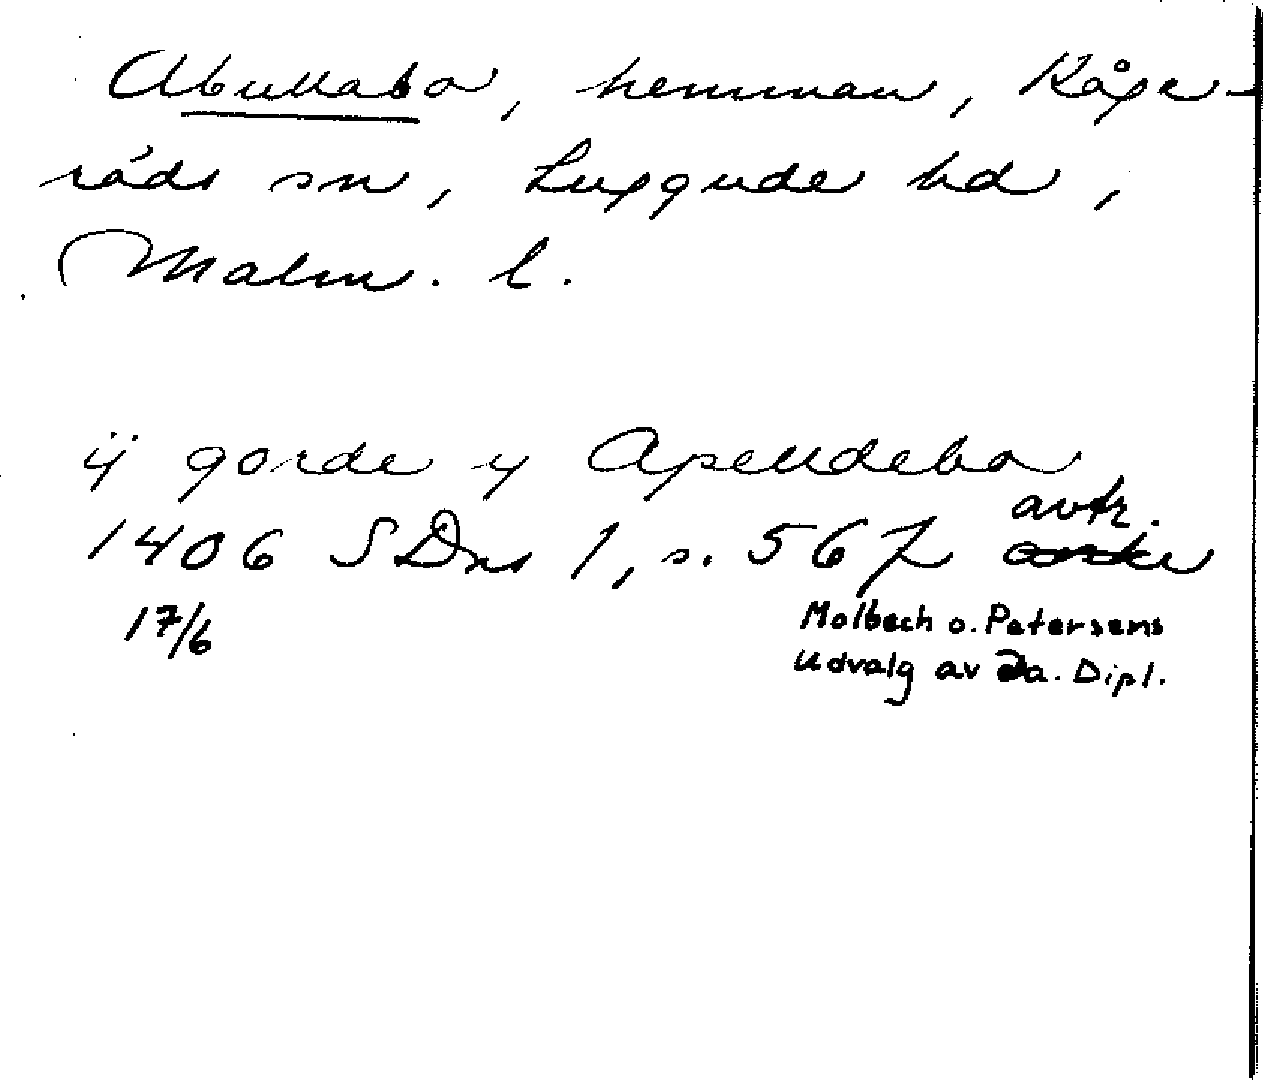 Abullabo, hemman, Kåge-
röds sn, Luggude hd,
Malm. l.
ij gorde y Apelldebo
avtr.
1406 SDns 1, s. 567
17/6
Molbech o. Petersens
Udvalg av Da. Dipl.